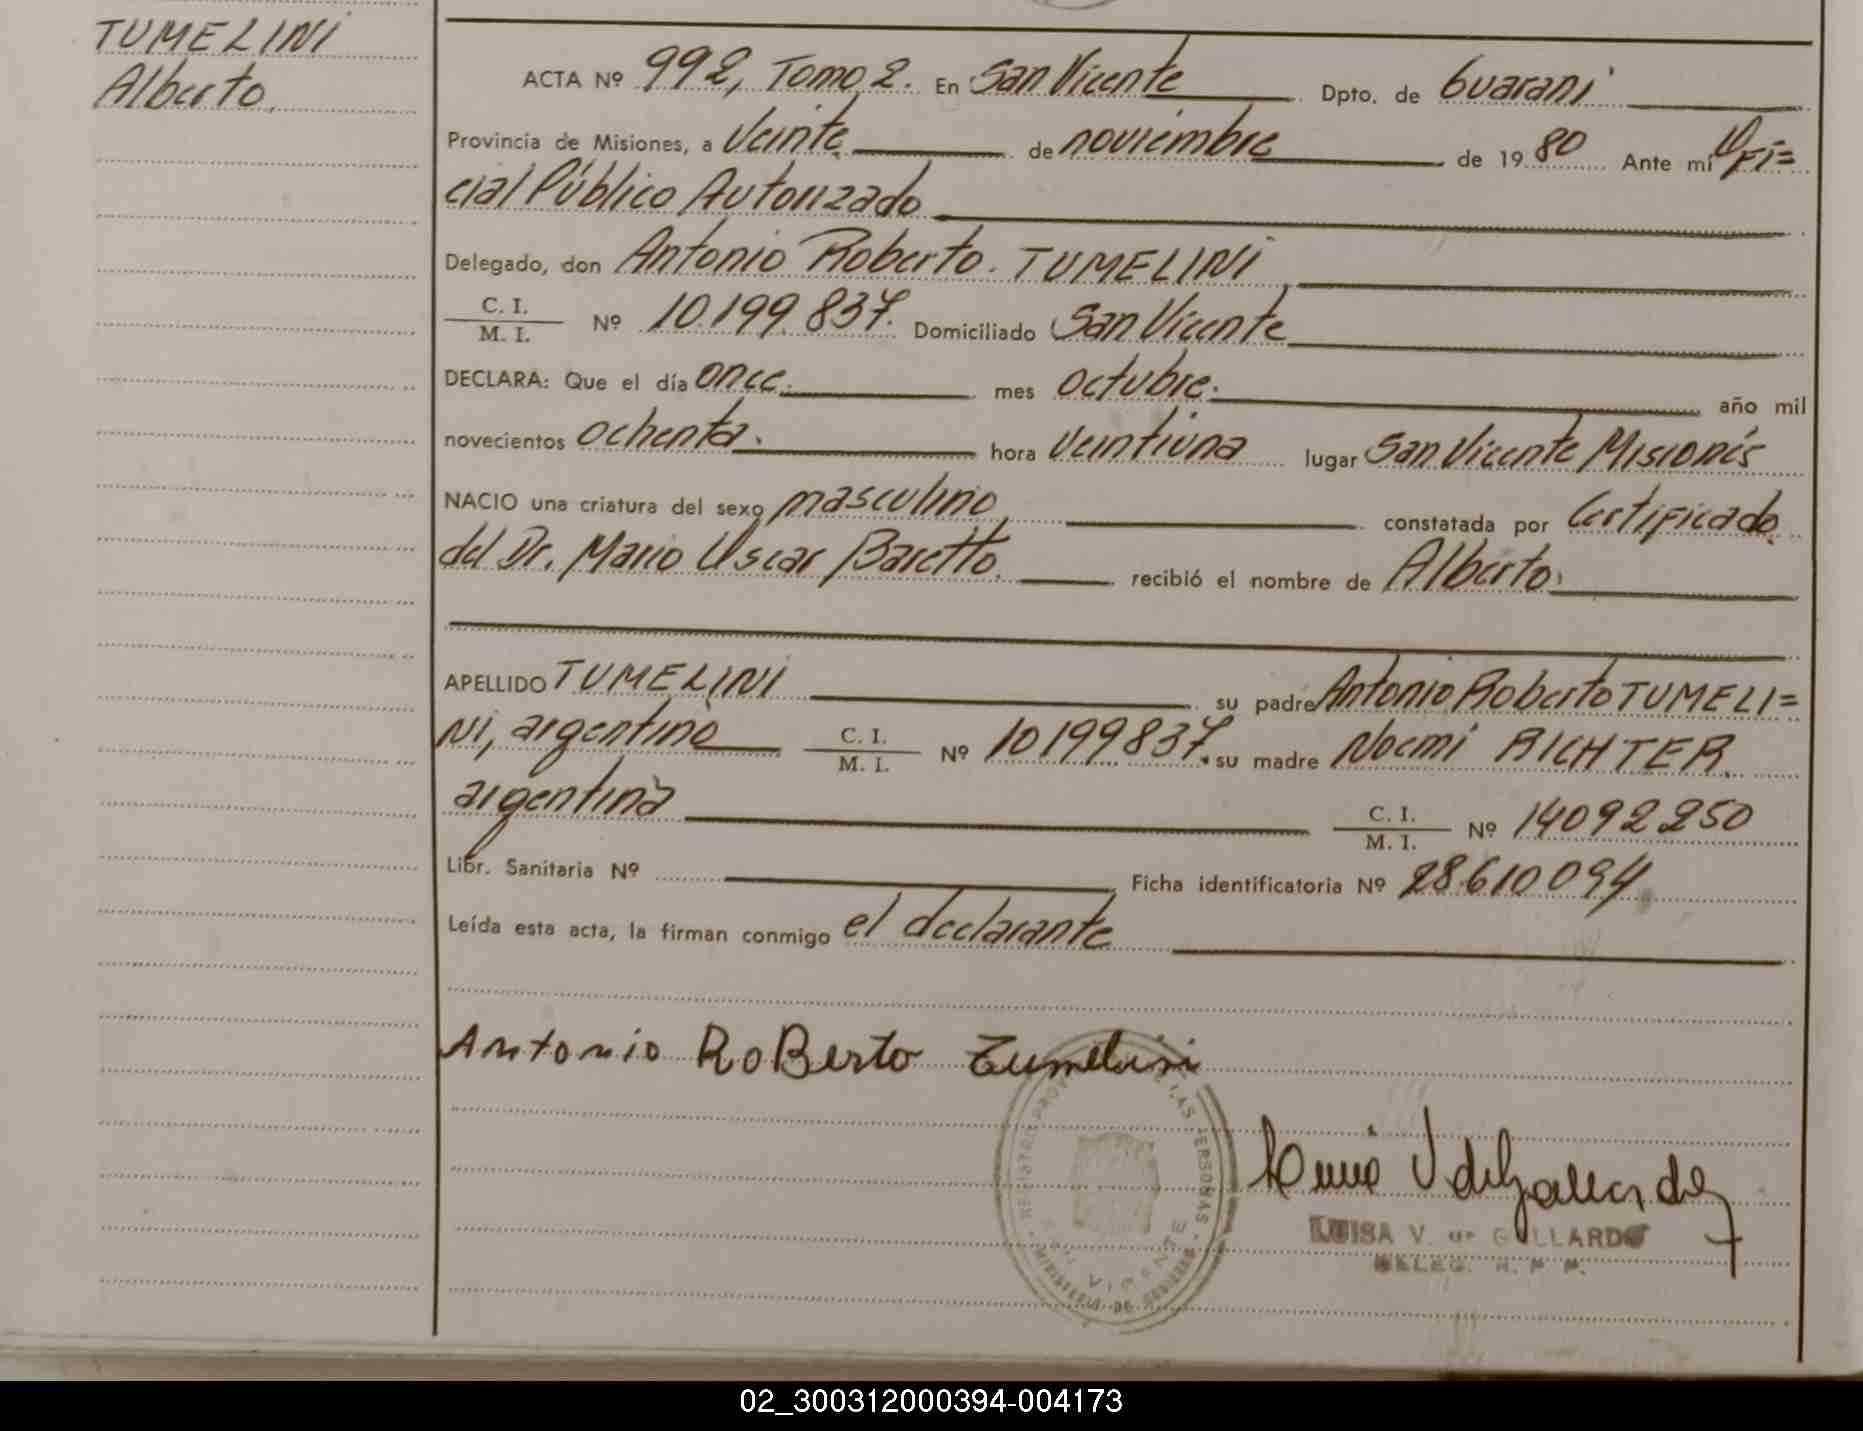 TUMELINI
Alberto.
ACTA Nº 992, Tomo 2. En San Vicente Dpto. de Guarani
Provincia de Misiones, a Veinte de noviembre de 1980 Ante mi Ofi=
cial Público Autorizado
Delegado, don Antonio Roberto. TUMELINI
C. I.
M. I. Nº 10.199.837. Domiciliado San Vicente
DECLARA: Que el día once. mes octubre. año mil
novecientos ochenta. hora veintiuna lugar San Vicente Misiones
NACIO una criatura del sexo masculino, constatada por Certificado
del Dr. Mario Oscar Baretto. recibió el nombre de Alberto.
APELLIDO TUMELINI su padre Antonio Roberto TUMELI=
NI, argentino C. I.
M. I. Nº 10199837. su madre Noemi RICHTER
argentina C. I.
M. I. Nº 14092250
Libr. Sanitaria Nº Ficha identificatoria Nº 28.610094
Leída esta acta, la firman conmigo el declarante
Antonio RoBerto Tumelini
REGISTRO PROV LAS PERSONAS
SAN VICENTE
MINISTERIO DE GOBIERNO
V. de Gallardo
LUISA V. de GALLARDO
DELEG.
02_300312000394-004173